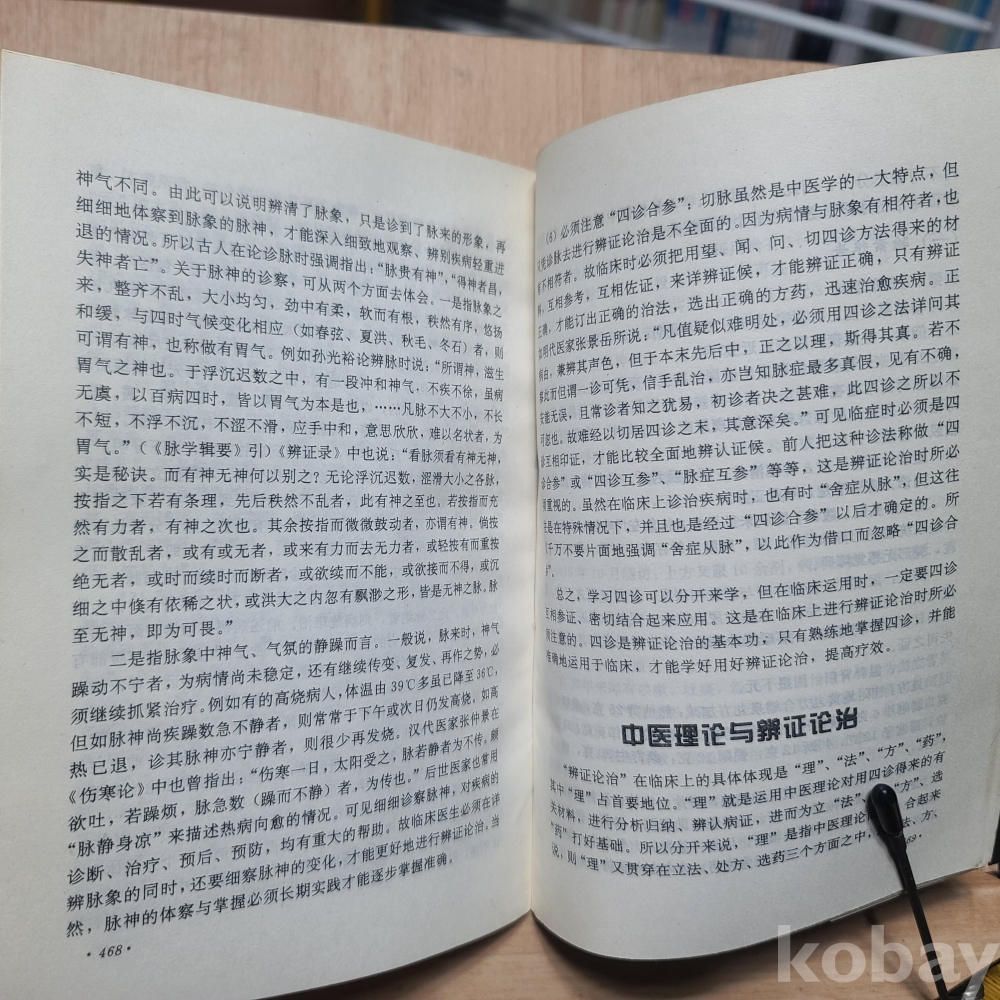 神气不同。由此可以说明辨清了脉象，只是诊到了脉来的形象，再
细细地体察到脉象的脉神，才能深入细致地观察、辨别疾病轻重进
退的情况。所以古人在论诊脉时强调指出：“脉贵有神”，“得神者昌，
失神者亡”。关于脉神的诊察，可从两个方面去体会。一是指脉象之
来，整齐不乱，大小均匀，劲中有柔，软而有根，秩然有序，悠扬
和缓，与四时气候变化相应（如春弦、夏洪、秋毛、冬石）者，则
可谓有神，也称做有胃气。例如孙光裕论辨脉时说：“所谓神，滋生
胃气之神也。于浮沉迟数之中，有一段冲和神气，不疾不徐，虽病
无虞，以百病四时，皆以胃气为本是也，……凡脉不大不小，不长
不短，不浮不沉，不涩不滑，应手中和，意思欣欣，难以名状者，为
胃气。”（《脉学辑要》引）《辨证录》中也说：“看脉须看有神无神，
实是秘诀。而有神无神何以别之？无论浮沉迟数，涩滑大小之各脉，
按指之下若有条理，先后秩然不乱者，此有神之至也。若按指而充
然有力者，有神之次也。其余按指而微微鼓动者，亦谓有神，倘按
之而散乱者，或有或无者，或来有力而去无力者，或轻按有而重按
绝无者，或时而续时而断者，或欲续而不能，或欲接而不得，或沉
细之中倏有依稀之状，或洪大之内忽有飘渺之形，皆是无神之脉。脉
至无神，即为可畏。”
二是指脉象中神气、气氛的静躁而言。一般说，脉来时，神气
躁动不宁者，为病情尚未稳定，还有继续传变、复发、再作之势，必
须继续抓紧治疗。例如有的高烧病人，体温由39℃多虽已降至36℃，
但如脉神尚疾躁数急不静者，则常常于下午或次日仍发高烧。如高
热已退，诊其脉神亦宁静者，则很少再发烧。汉代医家张仲景在
《伤寒论》中也曾指出：“伤寒一日，太阳受之，脉若静者为不传。颇
欲吐，若躁烦，脉急数（躁而不静）者，为传也。”后世医家也常用
“脉静身凉”来描述热病向愈的情况。可见细细诊察脉神，对疾病的
诊断、治疗、预后、预防，均有重大的帮助。故临床医生必须在详
辨脉象的同时，还要细察脉神的变化，才能更好地进行辨证论治。当
然，脉神的体察与掌握必须长期实践才能逐步掌握准确。
·468·
（6）必须注意“四诊合参”；切脉虽然是中医学的一大特点，但
仅凭诊脉去进行辨证论治是不全面的。因为病情与脉象有相符者，也
有不相符者。故临床时必须把用望、闻、问、切四诊方法得来的材
料，互相参考，互相佐证，来详辨证候，才能辨证正确，只有辨证
正确，才能订出正确的治法，选出正确的方药，迅速治愈疾病。正
如明代医家张景岳所说：“凡值疑似难明处，必须用四诊之法详问其
病由，兼辨其声色，但于本末先后中，正之以理，斯得其真。若不
察此而但谓一诊可凭，信手乱治，亦岂知脉症最多真假，见有不确，
安能无误，且常诊者知之犹易，初诊者决之甚难，此四诊之所以不
可忽也。故难经以切居四诊之末，其意深矣。”可见临症时必须是四
诊互相印证，才能比较全面地辨认证候。前人把这种诊法称做“四
诊合参”或“四诊互参”、“脉症互参”等等，这是辨证论治时所必
须重视的。虽然在临床上诊治疾病时，也有时“舍症从脉”，但这往
往是在特殊情况下，并且也是经过“四诊合参”以后才确定的。所
以千万不要片面地强调“舍症从脉”，以此作为借口而忽略“四诊合
参”。
总之，学习四诊可以分开来学，但在临床运用时，一定要四诊
互相参证、密切结合起来应用。这是在临床上进行辨证论治时所必
须注意的。四诊是辨证论治的基本功，只有熟练地掌握四诊，并能
准确地运用于临床，才能学好用好辨证论治，提高疗效。
中医理论与辨证论治
“辨证论治”在临床上的具体体现是“理”、“法”、“方”、“药”，
其中“理”占首要地位。“理”就是运用中医理论对用四诊得来的有
关材料，进行分析归纳、辨认病证，进而为立“法”、“方”、选
“药”打好基础。所以分开来说，“理”是指中医理论 合起来
说，则“理”又贯穿在立法、处方、选药三个方面之中， 法、方、
kobay